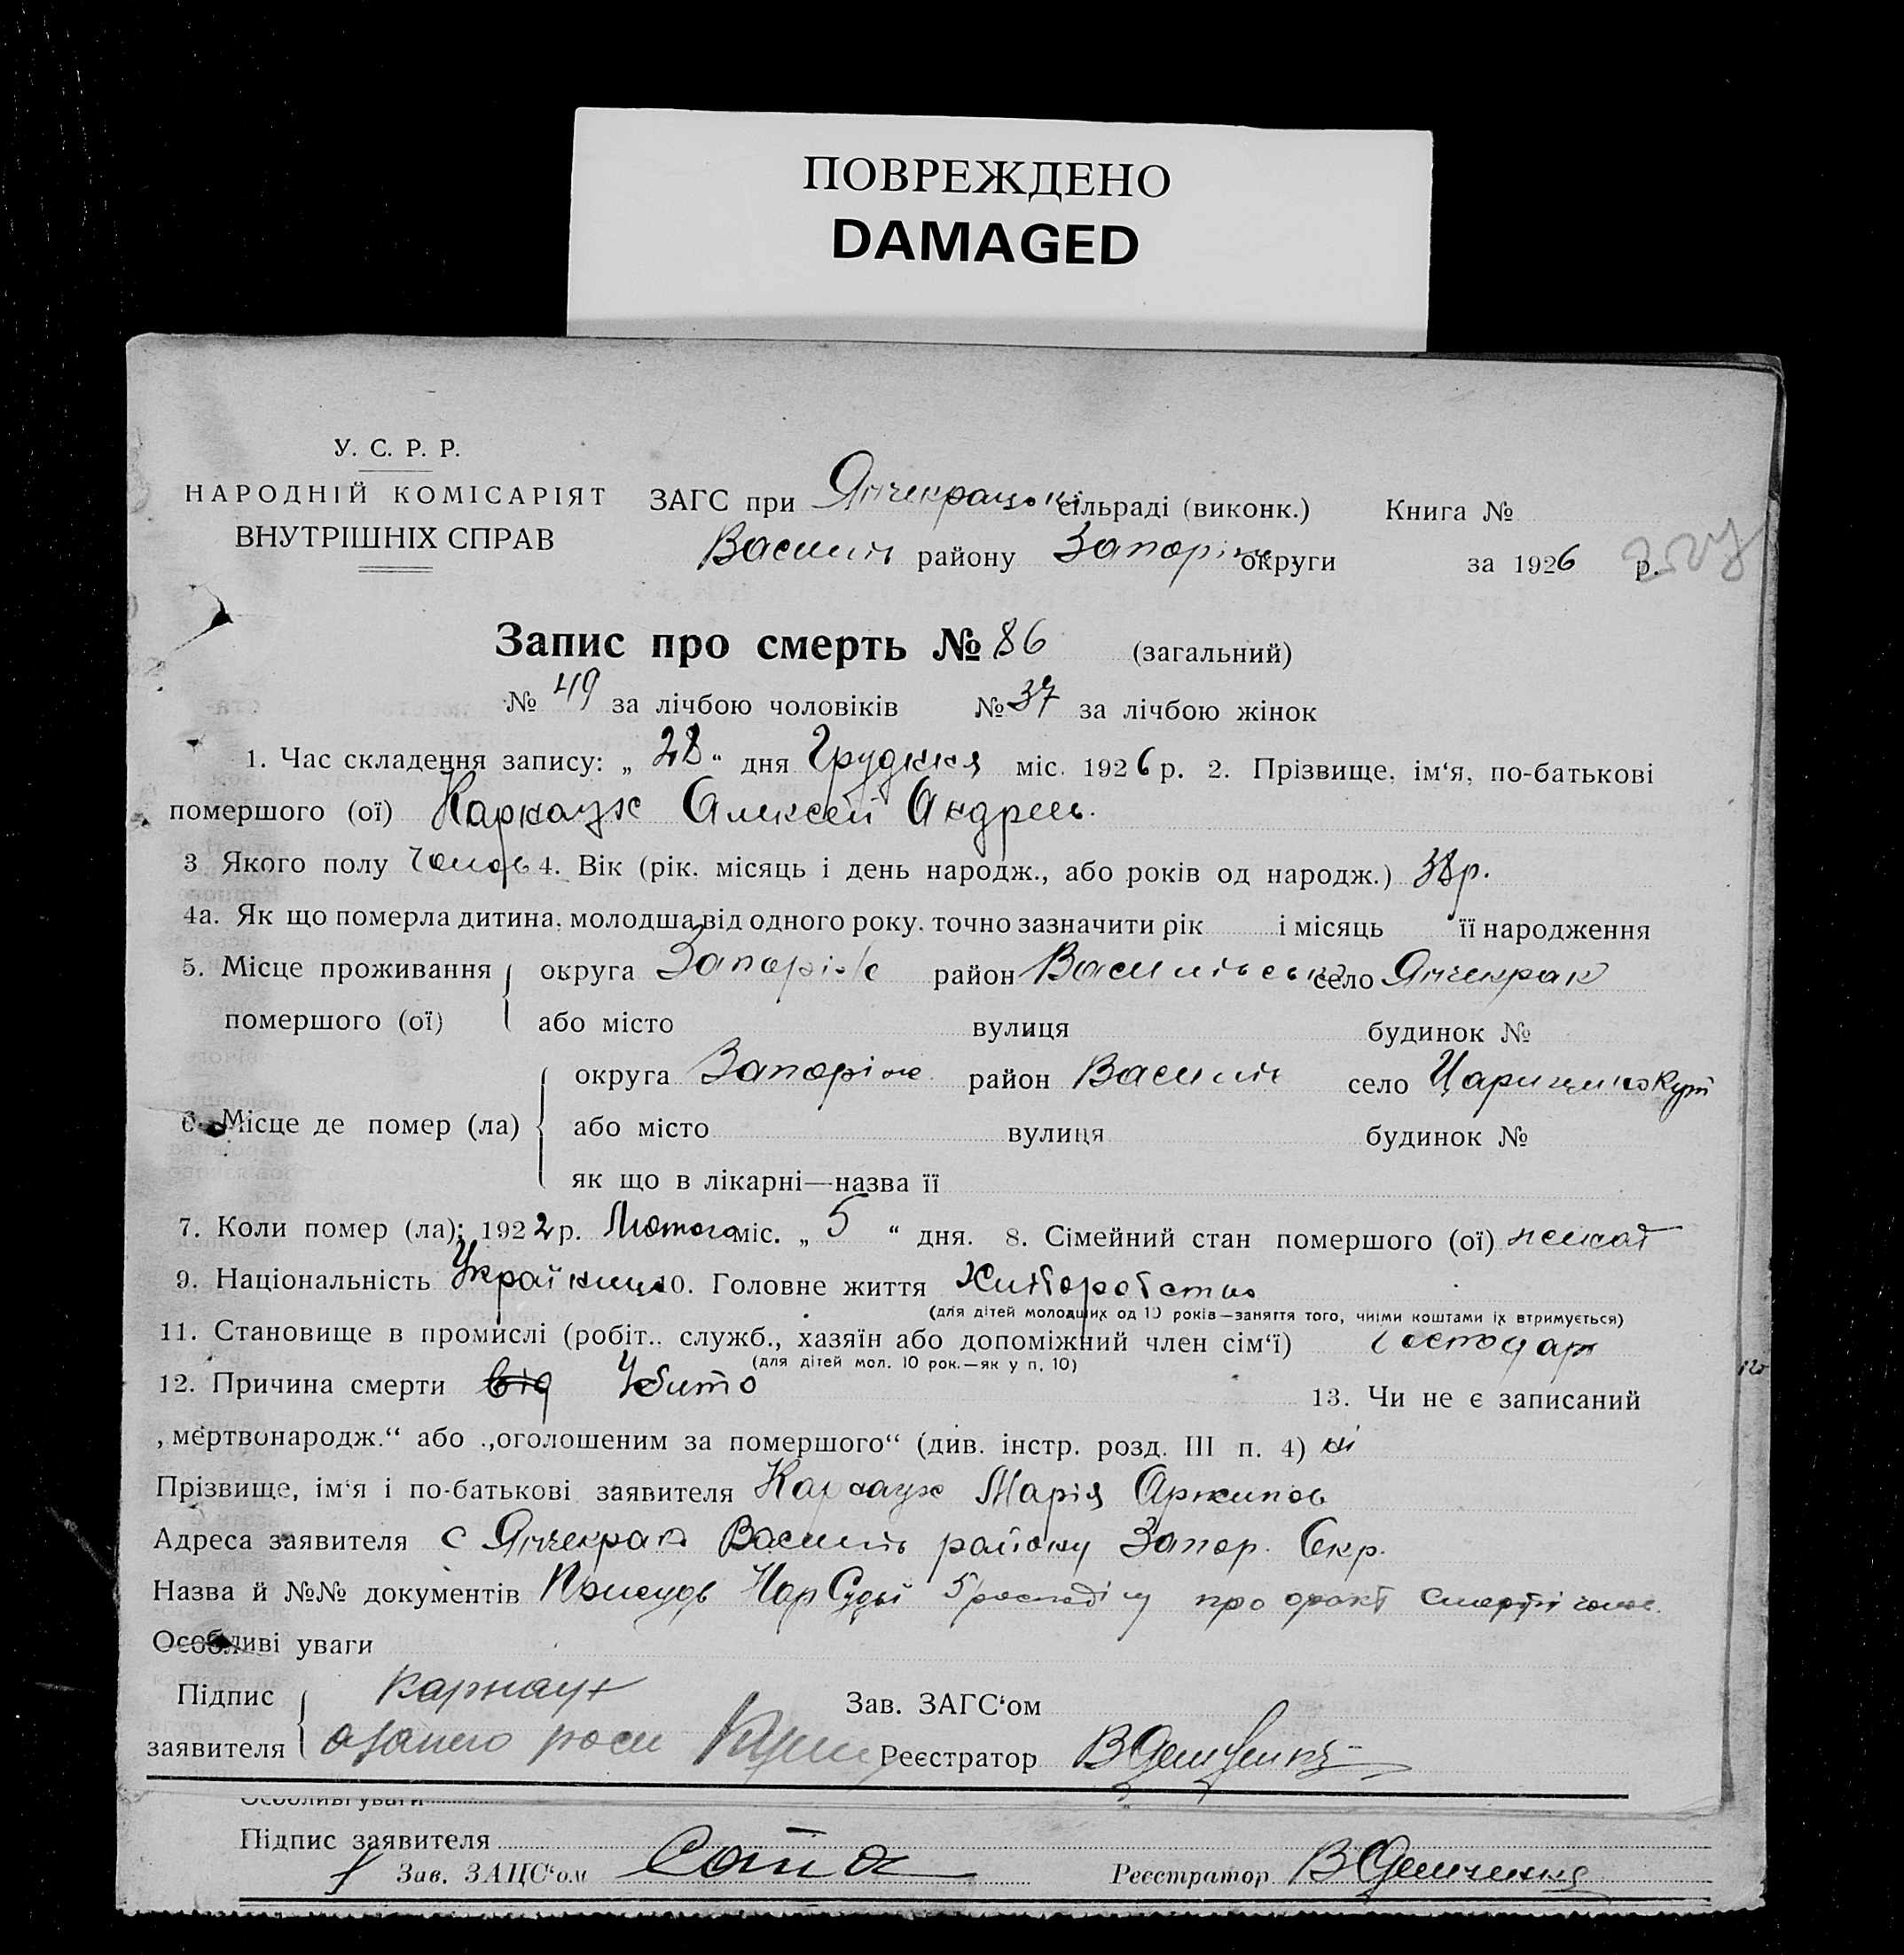 ПОВРЕЖДЕНО
DAMAGED
У. С. Р. Р.
НАРОДНІЙ КОМІСАРІЯТ
ВНУТРІШНІХ СПРАВ
ЗАГС при Янчекрацькі сільраді (виконк.) Книга №
Василів району Запоріж округи за 1926 р.
Запис про смерть № 86 (загальний)
№ 49 за лічбою чоловіків № 37 za лічбою жінок
1. Час складення запису: „ 28 “ дня Грудня міс. 1926 р. 2. Прізвище, ім‘я, по-батькові
помершого (ої) Карнаух Алексей Андреев.
3 Якого полу чолов 4. Вік (рік. місяць і день народж., або років од народж.) 38 р.
4а. Як що померла дитина, молодша від одного року, точно зазначити рік і місяць її народження
5. Місце проживання округа Запоріж район Василівськ село Янчекрак
помершого (ої) або місто вулиця будинок №
округа Запоріж район Василів село
6. Місце де помер (ла) або місто вулиця будинок №
як що в лікарні—назва її
7. Коли помер (ла): 1922 р. Лютого міс. „ 5 “ дня. 8. Сімейний стан помершого (ої) женат
9. Національність Українец 10. Головне життя Хліборобство
(для дітей молодших од 10 років—заняття того, чиїми коштами їх втримується)
11. Становище в промислі (робіт.. служб., хазяїн або допоміжний член сім‘ї) Господар
(для дітей мол. 10 рок.—як у п. 10)
12. Причина смерти від Убито 13. Чи не є записаний
„мертвонародж.“ або „оголошеним за помершого“ (див. інстр. розд. III п. 4) ні
Прізвище, ім‘я і по-батькові заявителя Карнаух Марія Архипов
Адреса заявителя с Янчекрак Василів району Запор. Окр.
Назва й №№ документів НарСуда 5 про факт смерти
Особливі уваги
Підпис Карнаух Зав. ЗАГС‘ом
заявителя Реєстратор
Особливі уваги
Підпис заявителя
Зав. ЗАЦС‘ом Реєстратор